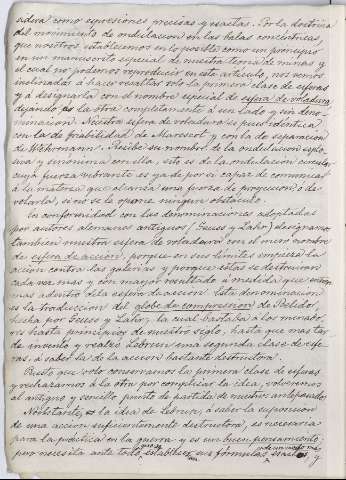 sidera como espresiones precisas y esactas. Por la doctrina
del movimiento de ondulacion en las balas concentricas,
que nosotros establecemos en lo posible como un principio
en un manuscrito especial de nuestra teoria de minas y
el cual no podemos reproducir en este articulo, nos vemos
instinados á hacer resaltar solo la primera clase de esferas
y á designarla con el nombre especial de esfera de voladura,
dejando la otra completamente á un lado y sin deno-
minacion. Nuestra esfera de voladura es pues identica
con la de friabilidad de Marescot y con la de separacion
de Wehrmann. Recibe su nombre de la ondulacion esplo-
siva y sinonima con ella, esto es de la ondulacion circular
cuya fuerza vibrante es ya de por si capaz de comunicar
á la materia que alcanza una fuerza de proyeccion ó de
volarla, si no se la opone ningun obstaculo.
En conformidad con las denominaciones adoptadas
por autores alemanes antiguos (Geuss y Lahr) designamos
tambien nuestra esfera de voladura con el mero nombre
de esfera de accion, porque en sus limites empieza la
accion contra las galerias y porque estas se destruiran
cada vez mas y con mayor resultado á medida que entren
mas adentro de la esfera de accion. Esta denominacion
es la traduccion del globe de compression de Belidor,
hecha por Geuss y Lahr, la cual bastaba á los minado-
res hasta principios de nuestro siglo, hasta que mas tar-
de invento y realzó Lebrun una segunda clase de esfe-
ras, á saber la de la accion bastante destructora.
Puesto que solo conservamos la primera clase de esferas
y rechazamos á la otra por complicar la idea, volvemos
al antiguo y sencillo punto de partida de nuestros antepasados.
No obstante, la idea de Lebrun, á saber la suposicion
de una accion suficientemente destructora, es necesaria
para la practica en la guerra y es un buen pensamiento;
pero necesita ante todo establecer sus fórmulas